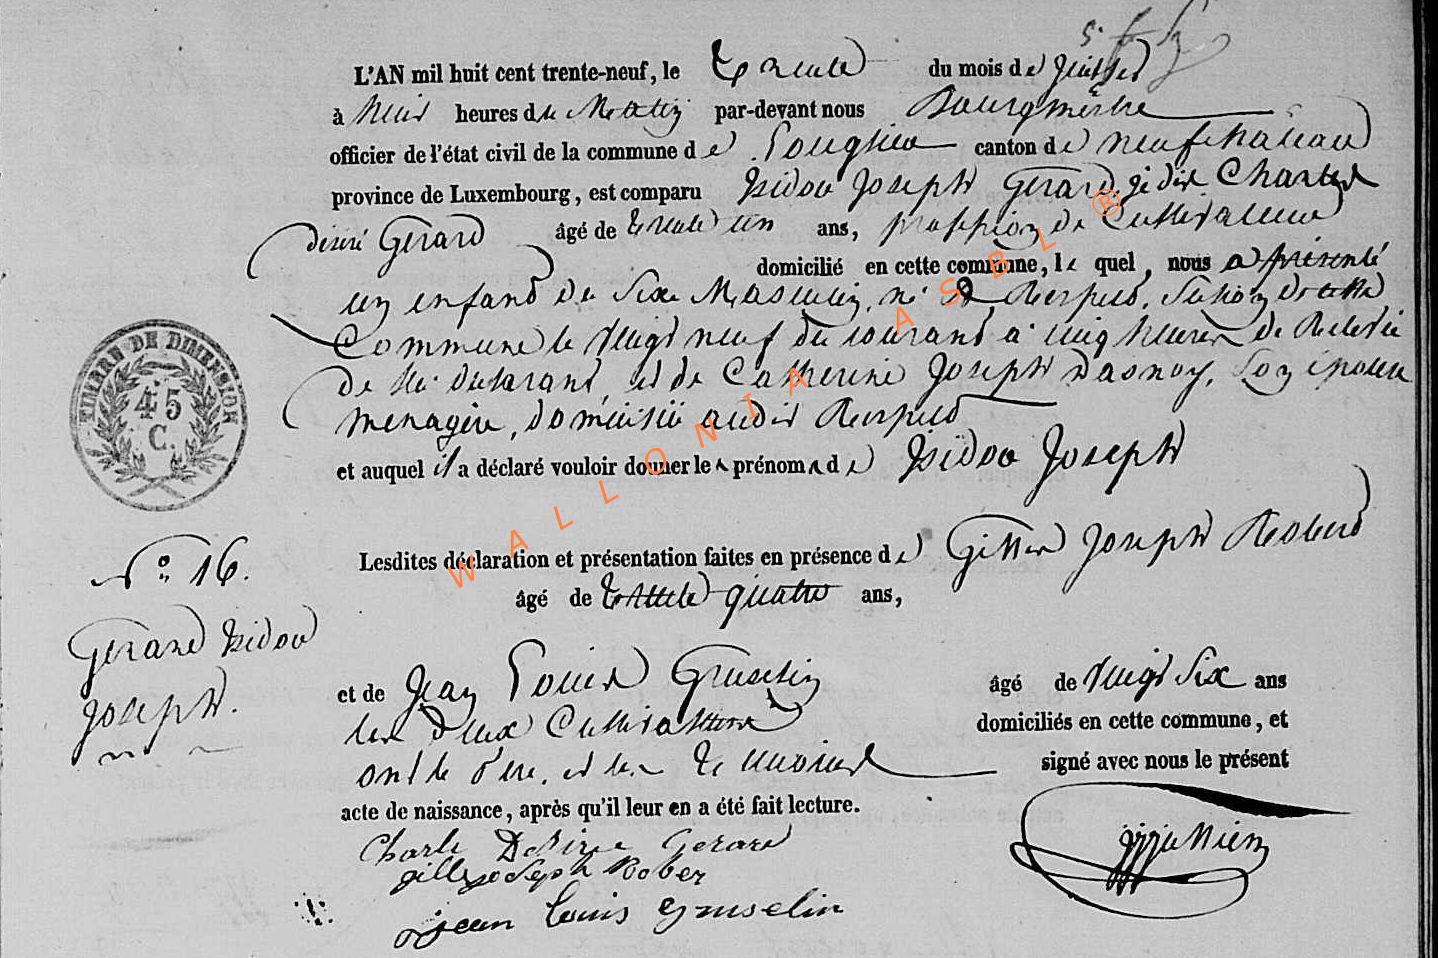 L'AN mil huit cent trente-neuf, le trente du mois de Juillet
à heures du Matin par-devant nous Bourgmestre
officier de l'état civil de la commune de Longlier canton de neufchateau
province de Luxembourg, est comparu Isidor Joseph Gerard, je dis Charles
désiré Gerard âgé de trente un ans, profession de Cultivateur
domicilié en cette commune, le quel, nous a présenté
un enfant du Sexe Masculin, né à Respelt, Section de cette
Commune le vingt neuf du courant à cinq heures de Relevée
de lui déclarant, et de Catherine Joseph Dasnoy, Son épouse
menagère, domicilié audit Respelt
et auquel il a déclaré vouloir donner les prénoms de Isidor Joseph
Lesdites déclaration et présentation faites en présence de Joseph Robert
âgé de trente quatre ans,
et de Jean Louis Gruselin âgé de vingt Six ans
les deux Cultivateurs domiciliés en cette commune, et
ont le Père, et les témoins signé avec nous le présent
acte de naissance, après qu'il leur en a été fait lecture.
Charle Desire Gerard
gille joseph Rober
jean louis gruselin
No 16.
Gerard Isidor
Joseph.
TIMBRE DE DIMENSION
45
C.
WALLONIA ASBL ®